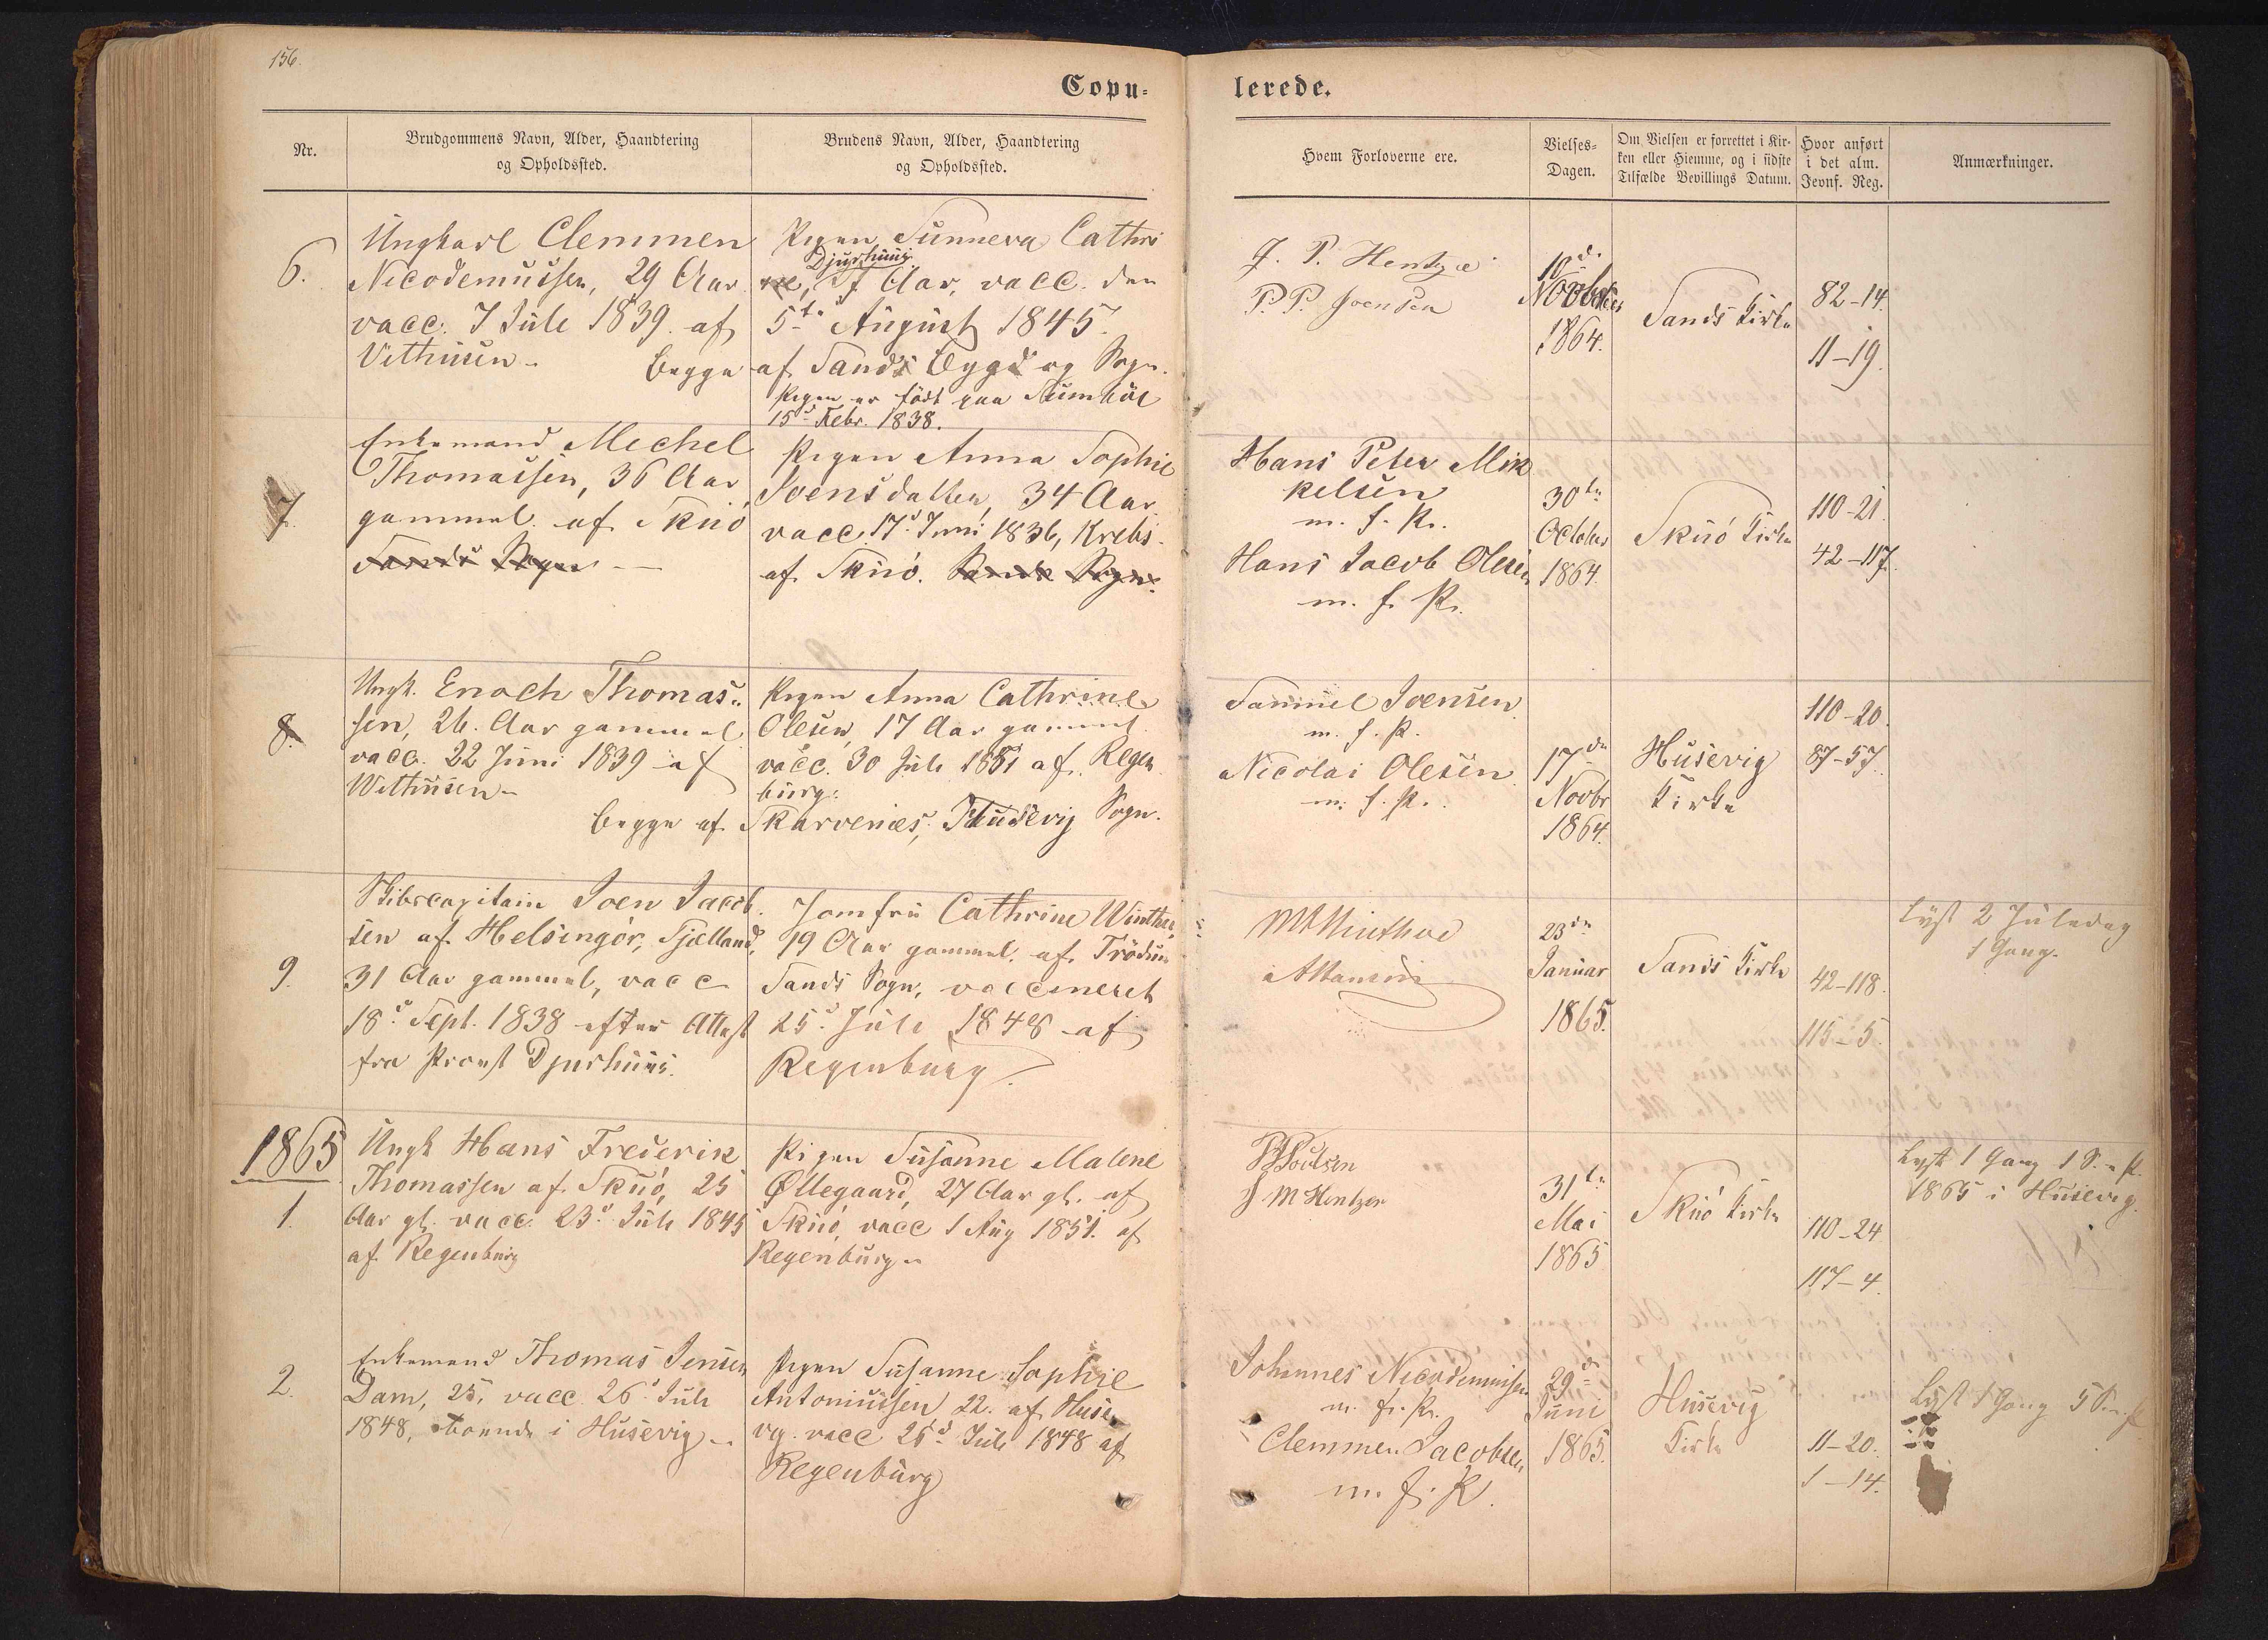 156.
Copu-
lerede.
Nr.
Brudgommens Navn, Alder, Haandtering
og Opholdssted.
Brudens Navn, Alder, Haandtering
og Opholdssted.
Hvem Forloverne ere.
Vielses-
Dagen.
Om Vielsen er forrettet i Kir-
ken eller Hiemme, og i sidste
Tilfælde Bevillings Datum.
Hvor anført
i det alm.
Jevnf. Reg.
Anmærkninger.
6.
Ungkarl Clemmen
Nicodemussen, 29 Aar
vacc. 7 Juli 1839. af
Vithusen -
Begge
Pigen Sunneva Cathri
Djurhuus
ne, Aar, vacc. den
5te August 1845.
af Sands Bygd og Sogn.
Pigen er født paa Sumbøe
15d Febr. 1838.
J. P. Hentze
P. P. Joensen
10de
Novbr
1864.
Sands Kirke
82-14.
11-19.
7.
Enkemand Mechel
Thomassen, 36 Aar
gammel. af Skuö
Sands Sogn
Pigen Anna Sophie
Joensdatter, 34 Aar
vacc. 17d Juni 1836, Krebs.
af Skuö. Sands Sogn.
Hans Peter Mik
kelsen
m. f. P.
Hans Jacob Olesen
m. f. P.
30te
October
1864.
Skuö Kirke
110-21.
42-117.
8.
Ungk. Enoch Thomas-
sen, 26. Aar gammel
vacc. 22 Juni 1839 af
Withusen -
Begge af
Pigen Anna Cathrine
Olesen, 17 Aar gammel
vacc. 30 Juli 1851 af Regen
burg.
Skarvenæs, Husevig Sogn.
Samuel Joensen
m. f. P.
Nicolai Olesen
m. f. P.
17de
Novbr
1864.
Husevig
Kirke
110-20.
87-57.
9.
Skibscapitain Joen Jacob-
sen af Helsingör, Sjælland,
31 Aar gammel, vacc
18d Sept. 1838 efter Attest
fra Provst Djurhuus.
Jomfru Cathrine Winther,
19 Aar gammel. af Trödum
Sands Sogn, vaccineret
25d Juli 1848 af
Regenburg.
Winther
23de
Januar
1865.
Sands Kirke
42-118.
115-5.
Lyst 2 Juledag
1 Gang.
1865
1.
Ungk Hans Frederik
Thomassen af Skuö, 25
Aar gl. vacc. 23d Juli 1845
af Regenburg
Pigen Susanne Malene
Øllegaard, 27 Aar gl. af
Skuö, vacc 1 Aug 1851. af
Regenburg -
Poulsen
J. M Hentzen
31te
Mai
1865
Skuö Kirke
110-24
117-4.
Lyst 1 Gang 1 S. e. P.
1865 i Husevig.
2.
Enkemand Thomas Jensen
Dam, 25, vacc 26d Juli
1848, boende i Husevig -
Pigen Susanne Sophie
Antoniussen 22. af Huse
vig. vacc 26d Juli 1848 af
Regenburg
Johannes Nicodemussen
m. f. P.
Clemmen Jacobsen
m. f. P.
29de
Juni
1865.
Husevig
Kirke
11-20.
1-14.
Lyst 1 Gang 5 S.